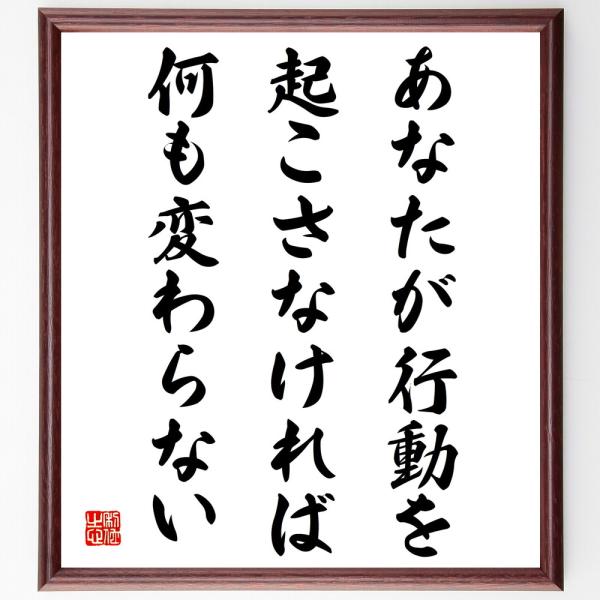 あなたが行動を
起こさなければ
何も変わらない